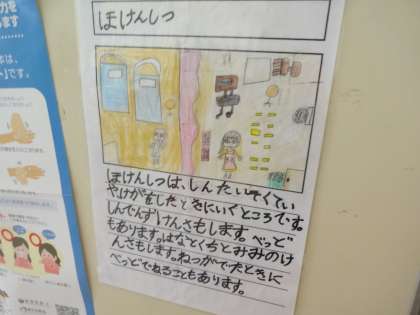 ほけんしつ
ほけんしつは、しんたいそくてい
やけがをしたときにいくところです。
しんでんずけんさもします。べっど
もあります。はなとくちとみみのけ
んさもします。ねつがでたときに
べっどでねることもあります。
力を
します
は、
です。